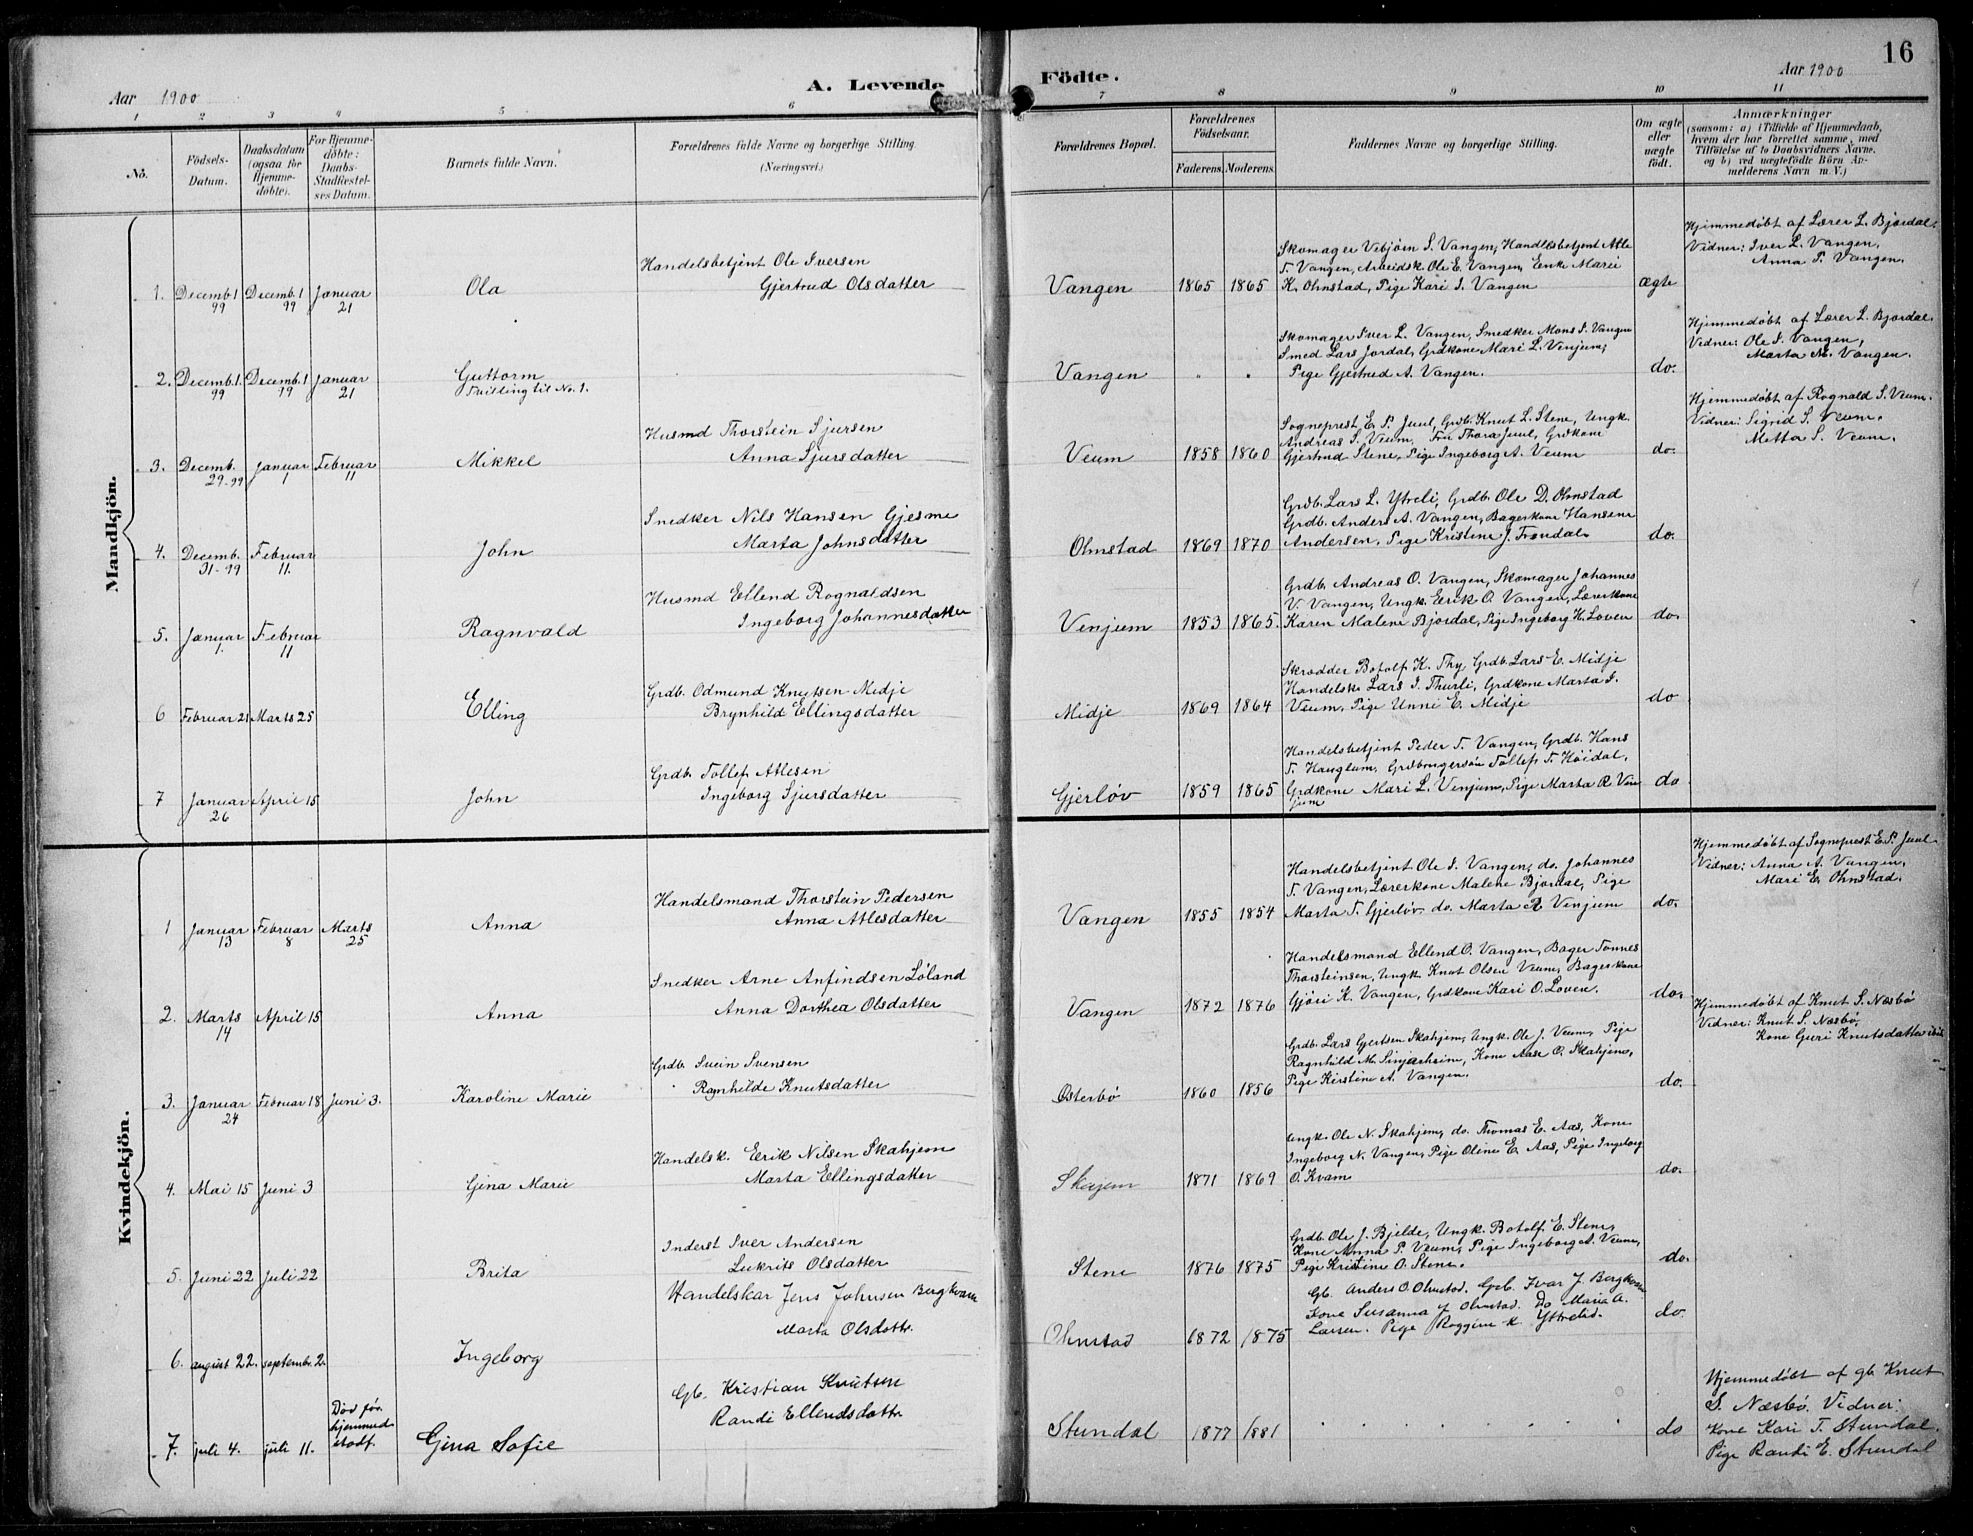 16
A. Levende Födte.
Aar 1900
Aar 1900
1 2 3 4 5 6 7 8 9 10 11
No.
Födsels-
Datum.
Daabsdatum
(ogsaa for
Hjemme-
døbte).
For Hjemme-
døbte:
Daabs-
Stadfæstel-
ses Datum.
Barnets fulde Navn.
Forældrenes fulde Navne og borgerlige Stilling
(Næringsvei.)
Forældrenes Bopæl.
Forældrenes
Födselsaar.
Faderens.
Moderens.
Faddernes Navne og borgerlige Stilling.
Om ægte
eller
uægte
født.
Anmærkninger
(saasom: a) i Tilfælde af Hjemmedaab,
hvem der har forrettet samme, med
Tilföielse af to Daabsvidners Navne,
og b) ved uægtefödte Börn An-
melderens Navn m. V.)
Mandkjön.
1. Decemb. 1 99 Decemb. 1 99 Januar 21 Ola
Handelsbetjent Ole Iversen
Gjertrud Olsdatter
Vangen 1865 1865
Skomager Vebjørn S. Vangen, Handelsbetjent Atle
T. Vangen, Arbeidsk. Ole E. Vangen, Enke Mari
K. Ohnstad, Pige Kari I. Vangen
ægte
Hjemmedøbt af Lærer L. Bjordal.
Vidner: Iver L. Vangen,
Anna T. Vangen.
2. Decemb. 1. 99 Decemb. 1 99 Januar 21 Guttorm
Tvilling til No. 1.
Vangen " "
Skomager Iver L. Vangen, Smedker Mons I. Vangen
Smed Lars Jordal, Grdkone Mari L. Venjum,
Pige Gjertrud A. Vangen.
do.
Hjemmedøbt af Lærer L. Bjordal.
Vidner: Ole I. Vangen,
Marta M. Vangen.
3. Decemb. 29-99 Januar 1 Februar 11 Mikkel
Husmd Thorstein Sjursen
Anna Sjursdatter
Veum 1858 1860
Sogneprest E. P. Juul, Grdb. Knut L. Stene, Ungk.
Andreas S. Veum, Fru Thora Juul, Grdkone
Gjertrud Stene, Pige Ingeborg A. Veum
do.
Hjemmedøbt af Rognald S. Veum.
Vidner: Sigrid S. Veum.
Metta S. Veum.
4. Decemb. 31-99 Februar 11. John
Snedker Nils Hansen Gjesme
Marta Johnsdatter
Ohnstad 1869 1870
Grdb. Lars L. Ytreli, Grdb. Ole D. Ohnstad
Grdb. Anders A. Vangen, Bagerkone Hansena
Andersen, Pige Kristine J. Frondal.
do.
5. Januar 1. Februar 11 Ragnvald
Husmd Ellend Rognaldsen
Ingeborg Johannesdatter
Venjum 1853 1865.
Grdb. Andreas O. Vangen, Skomager Johannes
V. Vangen, Ungk. Eerik O. Vangen, Lærerkone
Karen Malene Bjordal, Pige Ingeborg H. Loven
do.
6 Februar 21 Marts 25 Elling
Grdb. Odmund Knutsen Midje
Brynhild Ellingsdatter
Midje 1869 1864
Skrædder Botolf K. Thy, Grdb. Lars E. Midje
Handelsk. Lars I. Thurli, Grdkone Marta I.
Veum, Pige Unni E. Midje
do
7 Januar 26 April 15 John
Grdb. Tollef Atlesen
Ingeborg Sjursdatter
Gjerløv 1859 1865
Handelsbetjent Peder T. Vangen, Grdb. Hans
T. Hauglum, Grdbrugersøn Tollef T. Höidal,
Grdkone Mari L. Venjum, Pige Marta R. Ven
jum
do
Kvindekjön.
1 Januar 13 Februar 8 Marts 25 Anna
Handelsmand Thorstein Pedersen
Anna Atlesdatter
Vangen 1855 1854
Handelsbetjent Ole I. Vangen, do. Johannes
T. Vangen, Lærerkone Malene Bjordal, Pige
Marta T. Gjerløv do. Marta R Venjum
do.
Hjemmedøbt af Sogneprest E. P. Juul
Vidner: Anna A. Vangen,
Mari E. Ohnstad.
2. Marts 14 April 15 Anna
Snedker Arne Anfindsen Løland
Anna Dorthea Olsdatter
Vangen 1872 1876
Handelsmand Ellend O. Vangen, Bager Tonnes
Thorsteinsen, Ungk. Knut Olsen Veum, Bagerkone
Gjøri K. Vangen, Grdkone Kari O. Loven.
do.
3. Januar 24 Februar 18 Juni 3. Karoline Marie
Grdb Svein Svensen
Ragnhilde Knutsdatter
Østerbø 1860 1856
Grdb. Lars Gjertsen Skahjem, Ungk. Ole J. Veum, Pige
Ragnhild M. Sinjarheim, Kone Aase O. Skahjem,
Pige Kirstine A. Vangen.
do.
Hjemmedøbt af Knut S. Næsbö
Vidner: Knut S. Næsbø,
Kone Guri Knutsdatter ibid
4. Mai 15 Juni 3 Gina Marie
Handelsk. Eerik Nilsen Skahjem
Marta Ellingsdatter
Skajem 1871 1869
Ungk. Ole N. Skahjem, do. Thomas E. Aas, Kone
Ingeborg N. Vangen, Pige Oline E. Aas, Pige Ingeborg
O. Kvam
do.
5. Juni 22 Juli 22 Brita
Inderst Iver Andersen
Lukrits Olsdatter
Stene 1876 1875
Grdb. Ole J. Bjelde, Ungk. Botolf E. Stene,
Kone Anna P. Veum, Pige Ingeborg A. Veum,
Pige Kristine O. Stene.
do.
6. august 22. septembr. 2. Ingeborg
Handelskar Jens Johnsen Bergkvam
Marta Olsdottr.
Ohnstad 1872 1875
Gb. Anders O. Ohnstad. Gb. Ivar J. Bergkvam
Kone Susanna J Ohnstad. do Maria A.
Larsen. Pige Raggine K. Ytrelid.
do.
7. juli 4. juli 11. Død før
hjemmed
stadf. Gina Sofie
Gb. Kristian Knutsen
Randi Ellendsdottr
Stundal 1877 1881
do
Hjemmedøbt af gb. Knut
S. Næsbø. Vidner:
Kone Kari T. Stundal.
Pige Randi E. Stundal